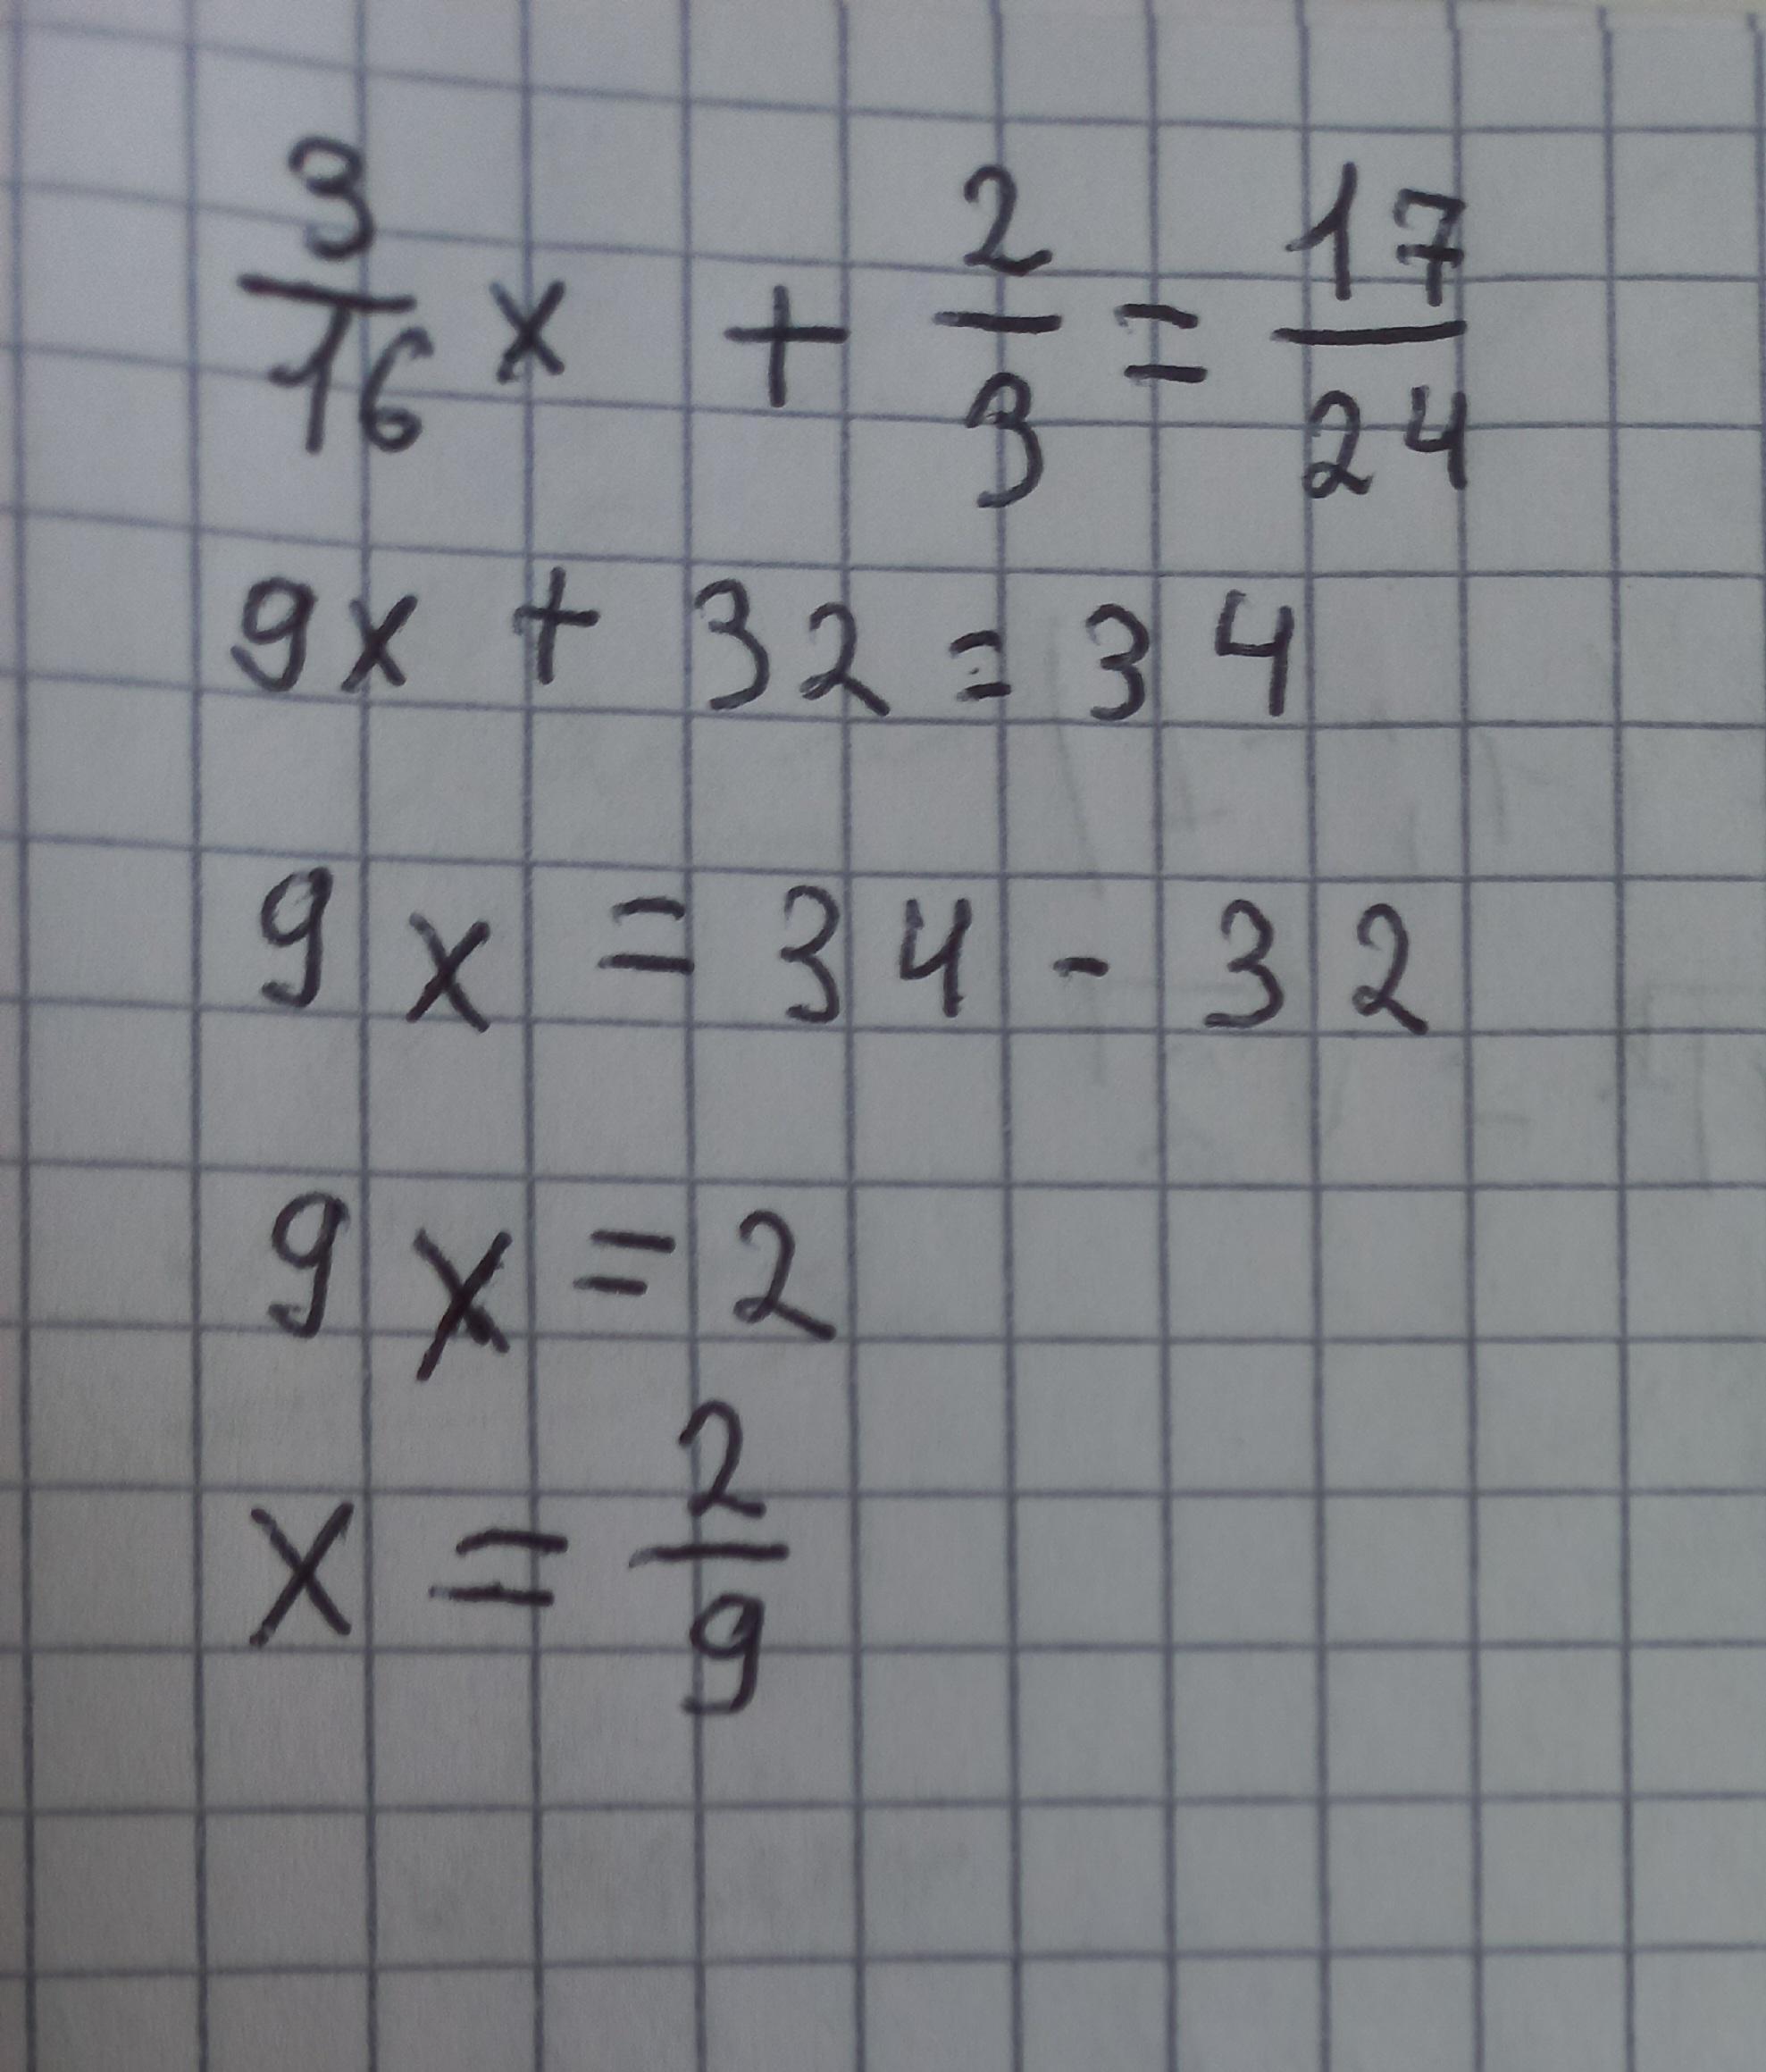 3/16 x + 2/3 = 17/24
9x + 32 = 34
9x = 34 - 32
9x = 2
x = 2/9